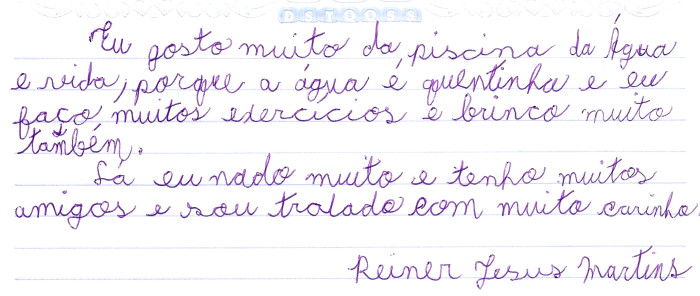 DSTQQSS
Eu gosto muito da piscina da Água
e vida, porque a água é quentinha e eu
faço muitos exercícios e brinco muito
também.
Lá eu nado muito e tenho muitos
amigos e sou tratado com muito carinho.
Reiner Jesus Martins